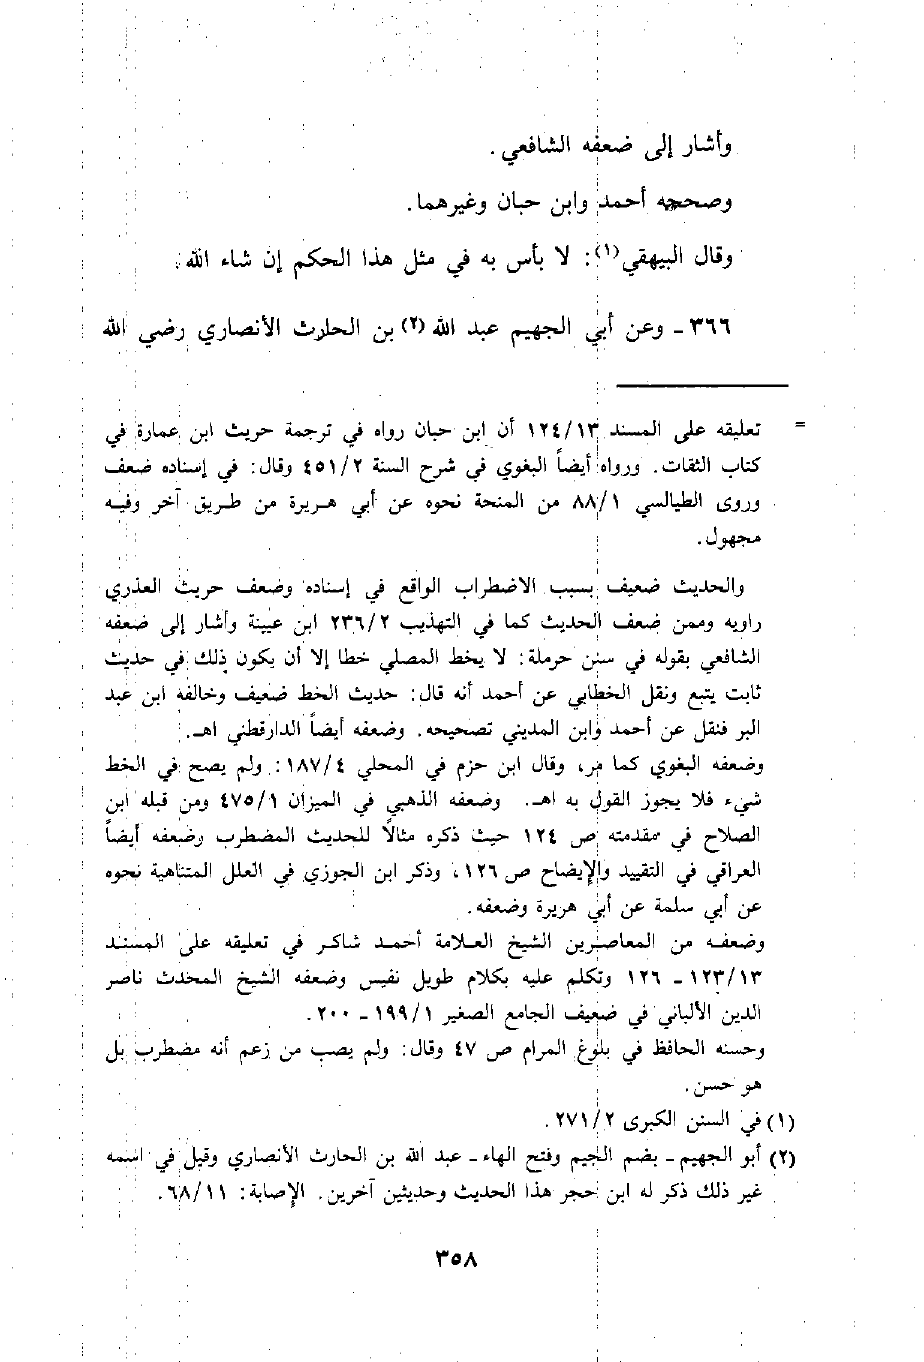 وأشار إلى ضعفه الشافعي.
وصححه أحمد وابن حبان وغيرهما.
وقال البيهقي(١): لا بأس به في مثل هذا الحكم إن شاء الله.
٣٦٦ ـ وعن أبي الجهيم عبد الله (٢) بن الحارث الأنصاري رضي الله
= تعليقه على المسند ١٢٤/١٣ أن ابن حبان رواه في ترجمة حريث ابن عمارة في
كتاب الثقات. ورواه أيضاً البغوي في شرح السنة ٤٥١/٢ وقال: في إسناده ضعف
وروى الطيالسي ٨٨/١ من المنحة نحوه عن أبي هريرة من طريق آخر وفيه
مجهول.
والحديث ضعيف بسبب الاضطراب الواقع في إسناده وضعف حريث العذري
راويه وممن ضعف الحديث كما في التهذيب ٢٣٦/٢ ابن عيينة وأشار إلى ضعفه
الشافعي بقوله في سنن حرملة: لا يخط المصلي خطا إلا أن يكون ذلك في حديث
ثابت يتبع ونقل الخطابي عن أحمد أنه قال: حديث الخط ضعيف وخالفه ابن عبد
البر فنقل عن أحمد وابن المديني تصحيحه. وضعفه أيضاً الدارقطني اهـ.
وضعفه البغوي كما مر، وقال ابن حزم في المحلي ١٨٧/٤: ولم يصح في الخط
شيء فلا يجوز القول به اهـ. وضعفه الذهبي في الميزان ٤٧٥/١ ومن قبله ابن
الصلاح في مقدمته ص ١٢٤ حيث ذكره مثالًا للحديث المضطرب وضعفه أيضاً
العراقي في التقييد والإيضاح ص ١٢٦، وذكر ابن الجوزي في العلل المتناهية نحوه
عن أبي سلمة عن أبي هريرة وضعفه.
وضعفه من المعاصرين الشيخ العلامة أحمد شاكر في تعليقه على المسند
١٢٣/١٣ ـ ١٢٦ وتكلم عليه بكلام طويل نفيس وضعفه الشيخ المحدث ناصر
الدين الألباني في ضعيف الجامع الصغير ١٩٩/١ ـ ٢٠٠.
وحسنه الحافظ في بلوغ المرام ص ٤٧ وقال: ولم يصب من زعم أنه مضطرب بل
هو حسن.
(١) في السنن الكبرى ٢٧١/٢.
(٢) أبو الجهيم ـ بضم الجيم وفتح الهاء ـ عبد الله بن الحارث الأنصاري وقيل في اسمه
غير ذلك ذكر له ابن حجر هذا الحديث وحديثين آخرين. الإصابة: ٦٨/١١.
٣٥٨